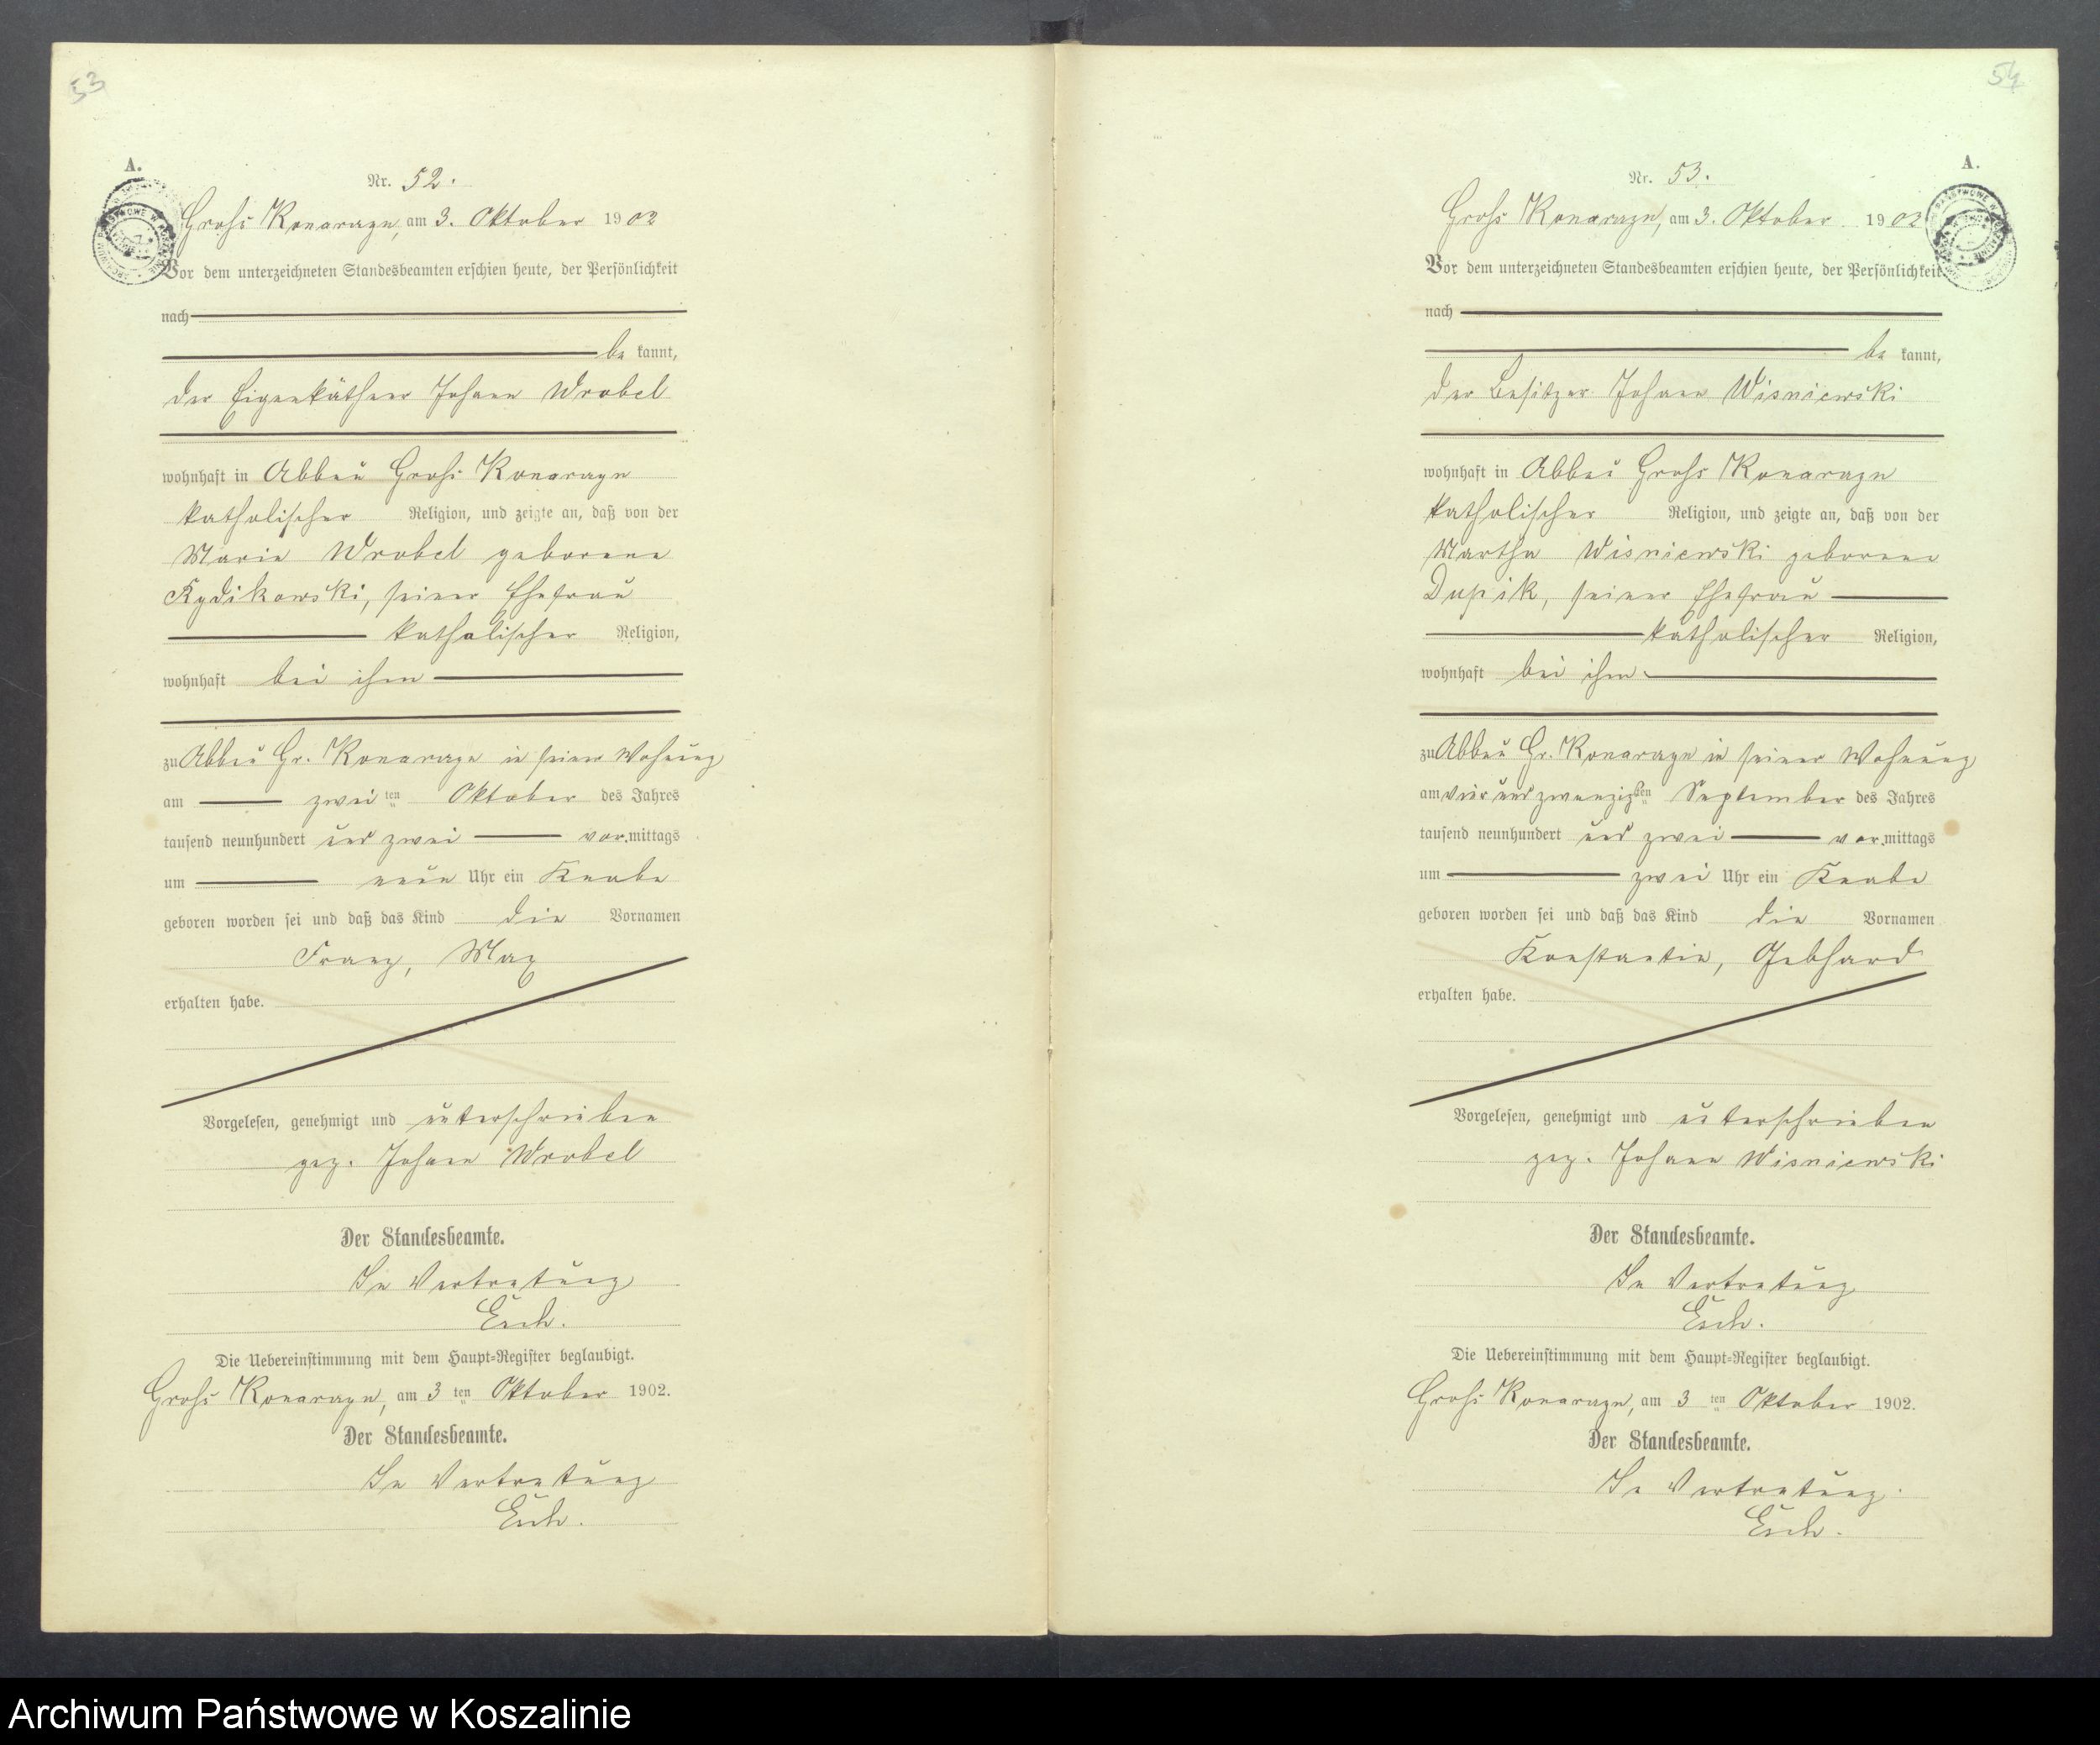 53
A.
Nr. 52.
Groß Konarczyn, am 3. Oktober 1902
Vor dem unterzeichneten Standesbeamten erschien heute, der Persönlichkeit
nach
be kannt,
der Eigenkäthner Johann Wrobel
wohnhaft in Abbau Groß Konarczyn
katholischer Religion, und zeigte an, daß von der
Marie Wrobel geborene
seiner Ehefrau
katholischer Religion,
wohnhaft bei ihm
zu Abbau Gr. Konarczyn in seiner Wohnung
am zwei ten Oktober des Jahres
tausend neunhundert und zwei vor mittags
um neun Uhr ein Knabe
geboren worden sei und daß das Kind die Vornamen
Franz, Max
erhalten habe.
Vorgelesen, genehmigt und unterschrieben
gez. Johann Wrobel
Der Standesbeamte.
In Vertretung
Esch.
Die Uebereinstimmung mit dem Haupt-Register beglaubigt.
Groß Konarczyn, am 3 ten Oktober 1902.
Der Standesbeamte.
In Vertretung
Esch.
54
A.
Nr. 53.
Groß Konarczyn, am 3. Oktober 1902
Vor dem unterzeichneten Standesbeamten erschien heute, der Persönlichkeit
nach
be kannt,
der Besitzer Johann Wisniewski
wohnhaft in Abbau Groß Konarczyn
katholischer Religion, und zeigte an, daß von der
Martha Wisniewski geborene
seiner Ehefrau
katholischer Religion,
wohnhaft bei ihm
zu Abbau Gr. Konarczyn in seiner Wohnung
am vier und zwanzigsten September des Jahres
tausend neunhundert und zwei vor mittags
um zwei Uhr ein Knabe
geboren worden sei und daß das Kind die Vornamen
Konstantin, Gebhard
erhalten habe.
Vorgelesen, genehmigt und unterschrieben
gez. Johann Wisniewski
Der Standesbeamte.
In Vertretung
Esch.
Die Uebereinstimmung mit dem Haupt-Register beglaubigt.
Groß Konarczyn, am 3 ten Oktober 1902.
Der Standesbeamte.
In Vertretung
Esch.
Archiwum Państwowe w Koszalinie